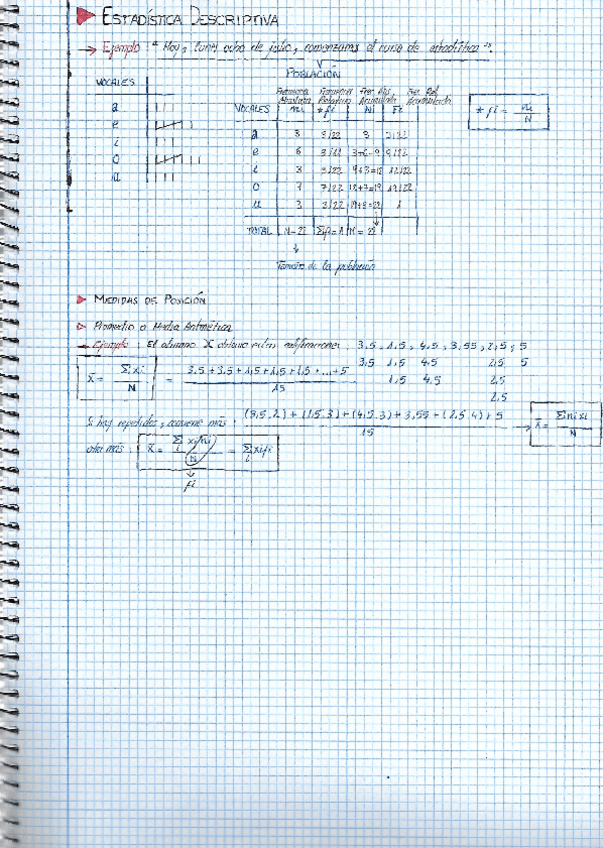 ESTADÍSTICA DESCRIPTIVA
→ Ejemplo "Hoy, lunes ocho de julio, comenzamos el curso de estadística".
POBLACIÓN
VOCALES
a
e
i
o
u
Frecuencia Absoluta Frecuencia Relativa Frec. Abs Acumulada Frec. Rel Acumulada
VOCALES ni * fi Ni Fi
* fi = ni / N
a 3 3/22 3 3/22
e 6 3+6=9 9/22
i 3 3/22 9+3=12 12/22
o 7 7/22 12+7=19 19/22
u 3 3/22 19+3=22 1
TOTAL N=22 Σfi=1 N=22
Tamaño de la población
MEDIDAS DE POSICIÓN
Promedio o Media Aritmética
→ Ejemplo: El alumno X obtuvo estas calificaciones 3,5, 1,5, 4,5, 3,55, 2,5, 5
3,5 1,5 4,5 2,5 5
1,5 4,5 2,5
2,5
x̄ = Σxi / N = 3,5 + 3,5 + 1,5 + 1,5 + 1,5 + ... + 5 / 15
Si hay repetidos, conviene más: (3,5.2) + (1,5.3) + (4,5.3) + 3,55 + (2,5.4) + 5 / 15 → x̄ = Σni xi / N
otra más: x̄ = Σ xi ni / N = Σ xi fi
i
fi